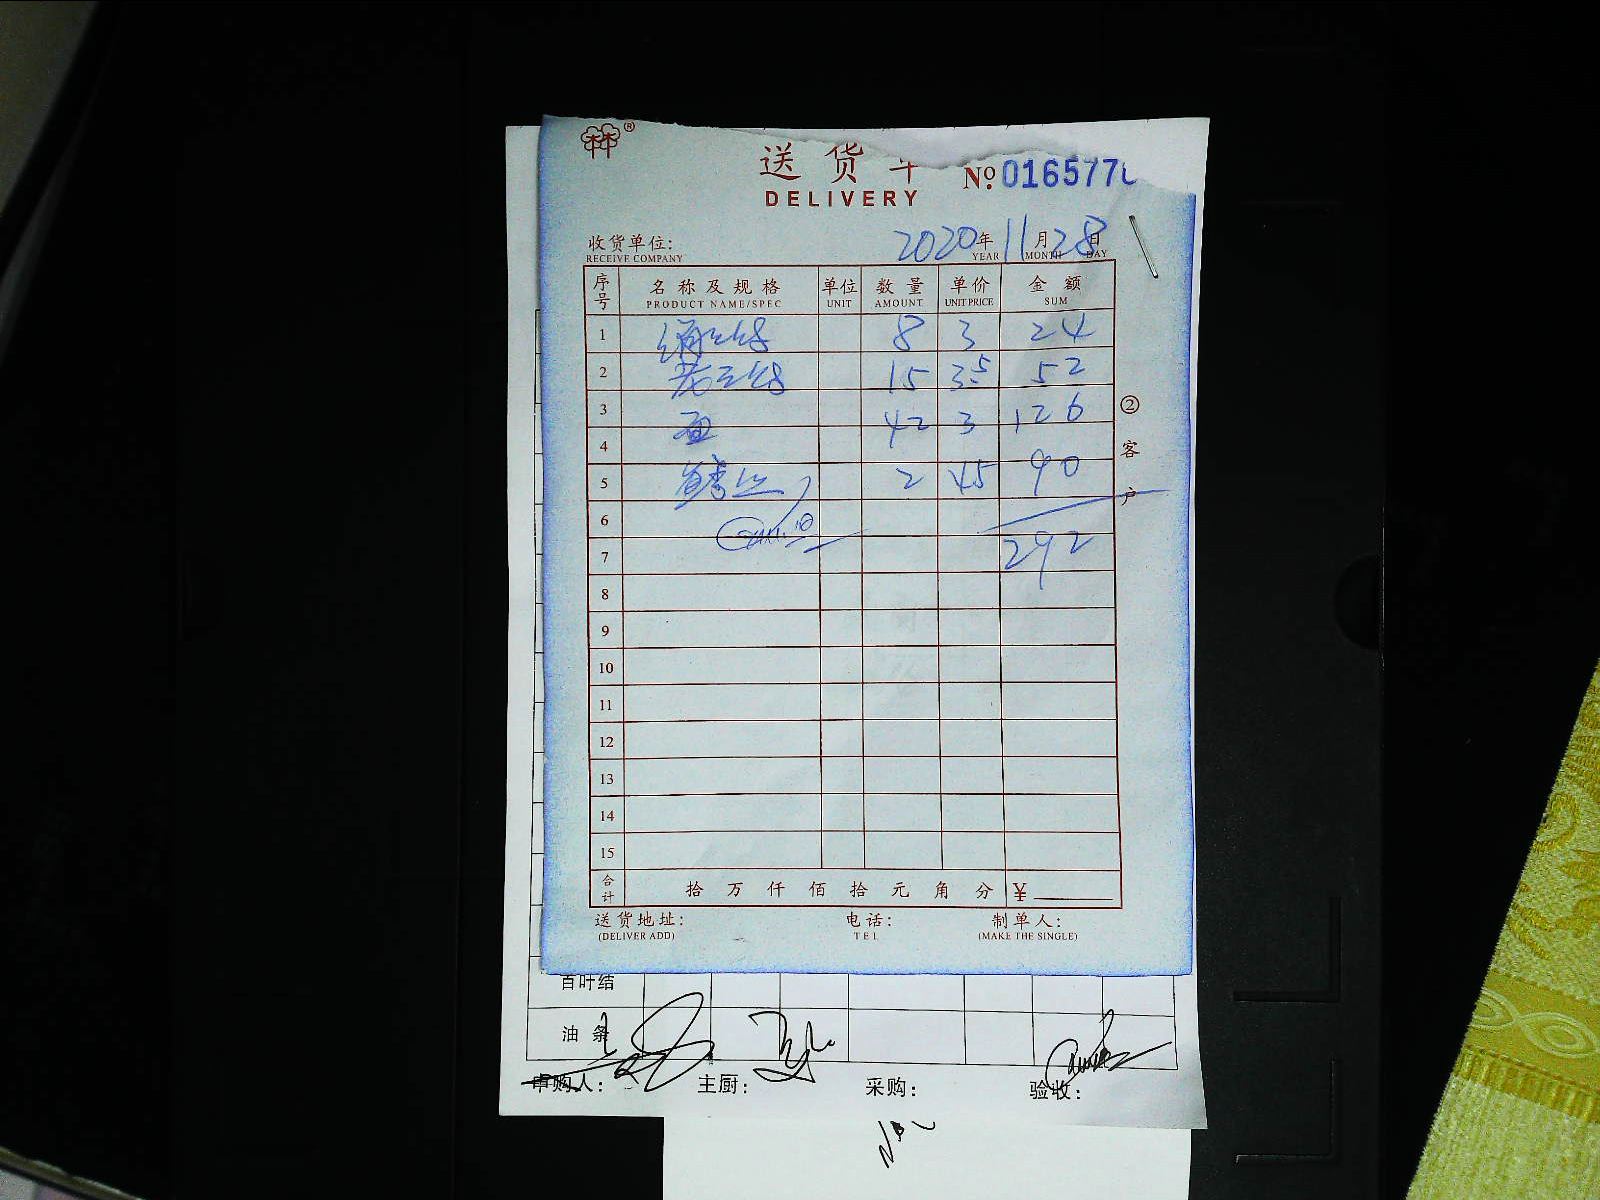 送货单
DELIVERY
№ 016577
收货单位:
RECEIVE COMPANY
2020年11月28日
YEAR MONTH DAY
序号 名称及规格 单位 数量 单价 金额
PRODUCT NAME/SPEC UNIT AMOUNT UNIT PRICE SUM
1 8 3 24
2 15 3.5 52
3 面 42 3 126
4
5 2 45 90
6
7 292
8
9
10
11
12
13
14
15
合计 拾万仟佰拾元角分 ¥
送货地址: 电话: 制单人:
(DELIVER ADD) TEL (MAKE THE SINGLE)
②客户
百叶结
油条
申购人: 主厨: 采购: 验收: